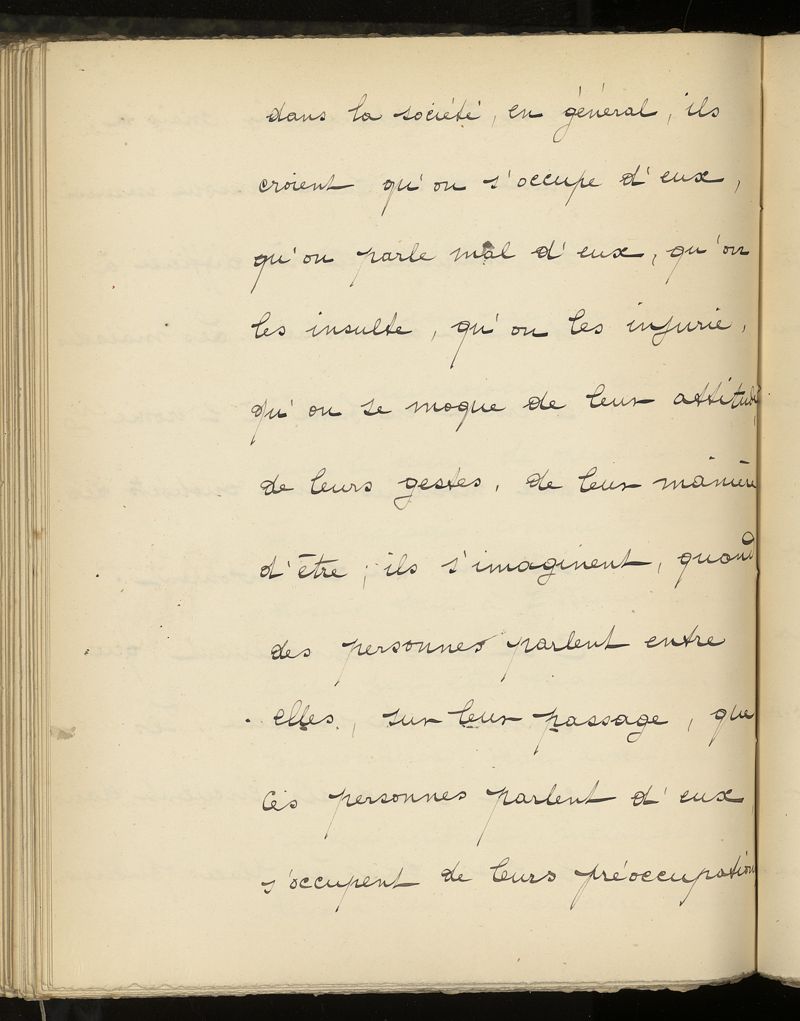 dans la société, en général, ils
croient qu'on s'occupe d'eux,
qu'on parle mal d'eux, qu'on
les insulte, qu'on les injurie,
qu'on se moque de leur attitude,
de leurs gestes, de leur manière
d'être ; ils s'imaginent, quand
des personnes parlent entre
elles, sur leur passage, que
ces personnes parlent d'eux,
s'occupent de leurs préoccupations